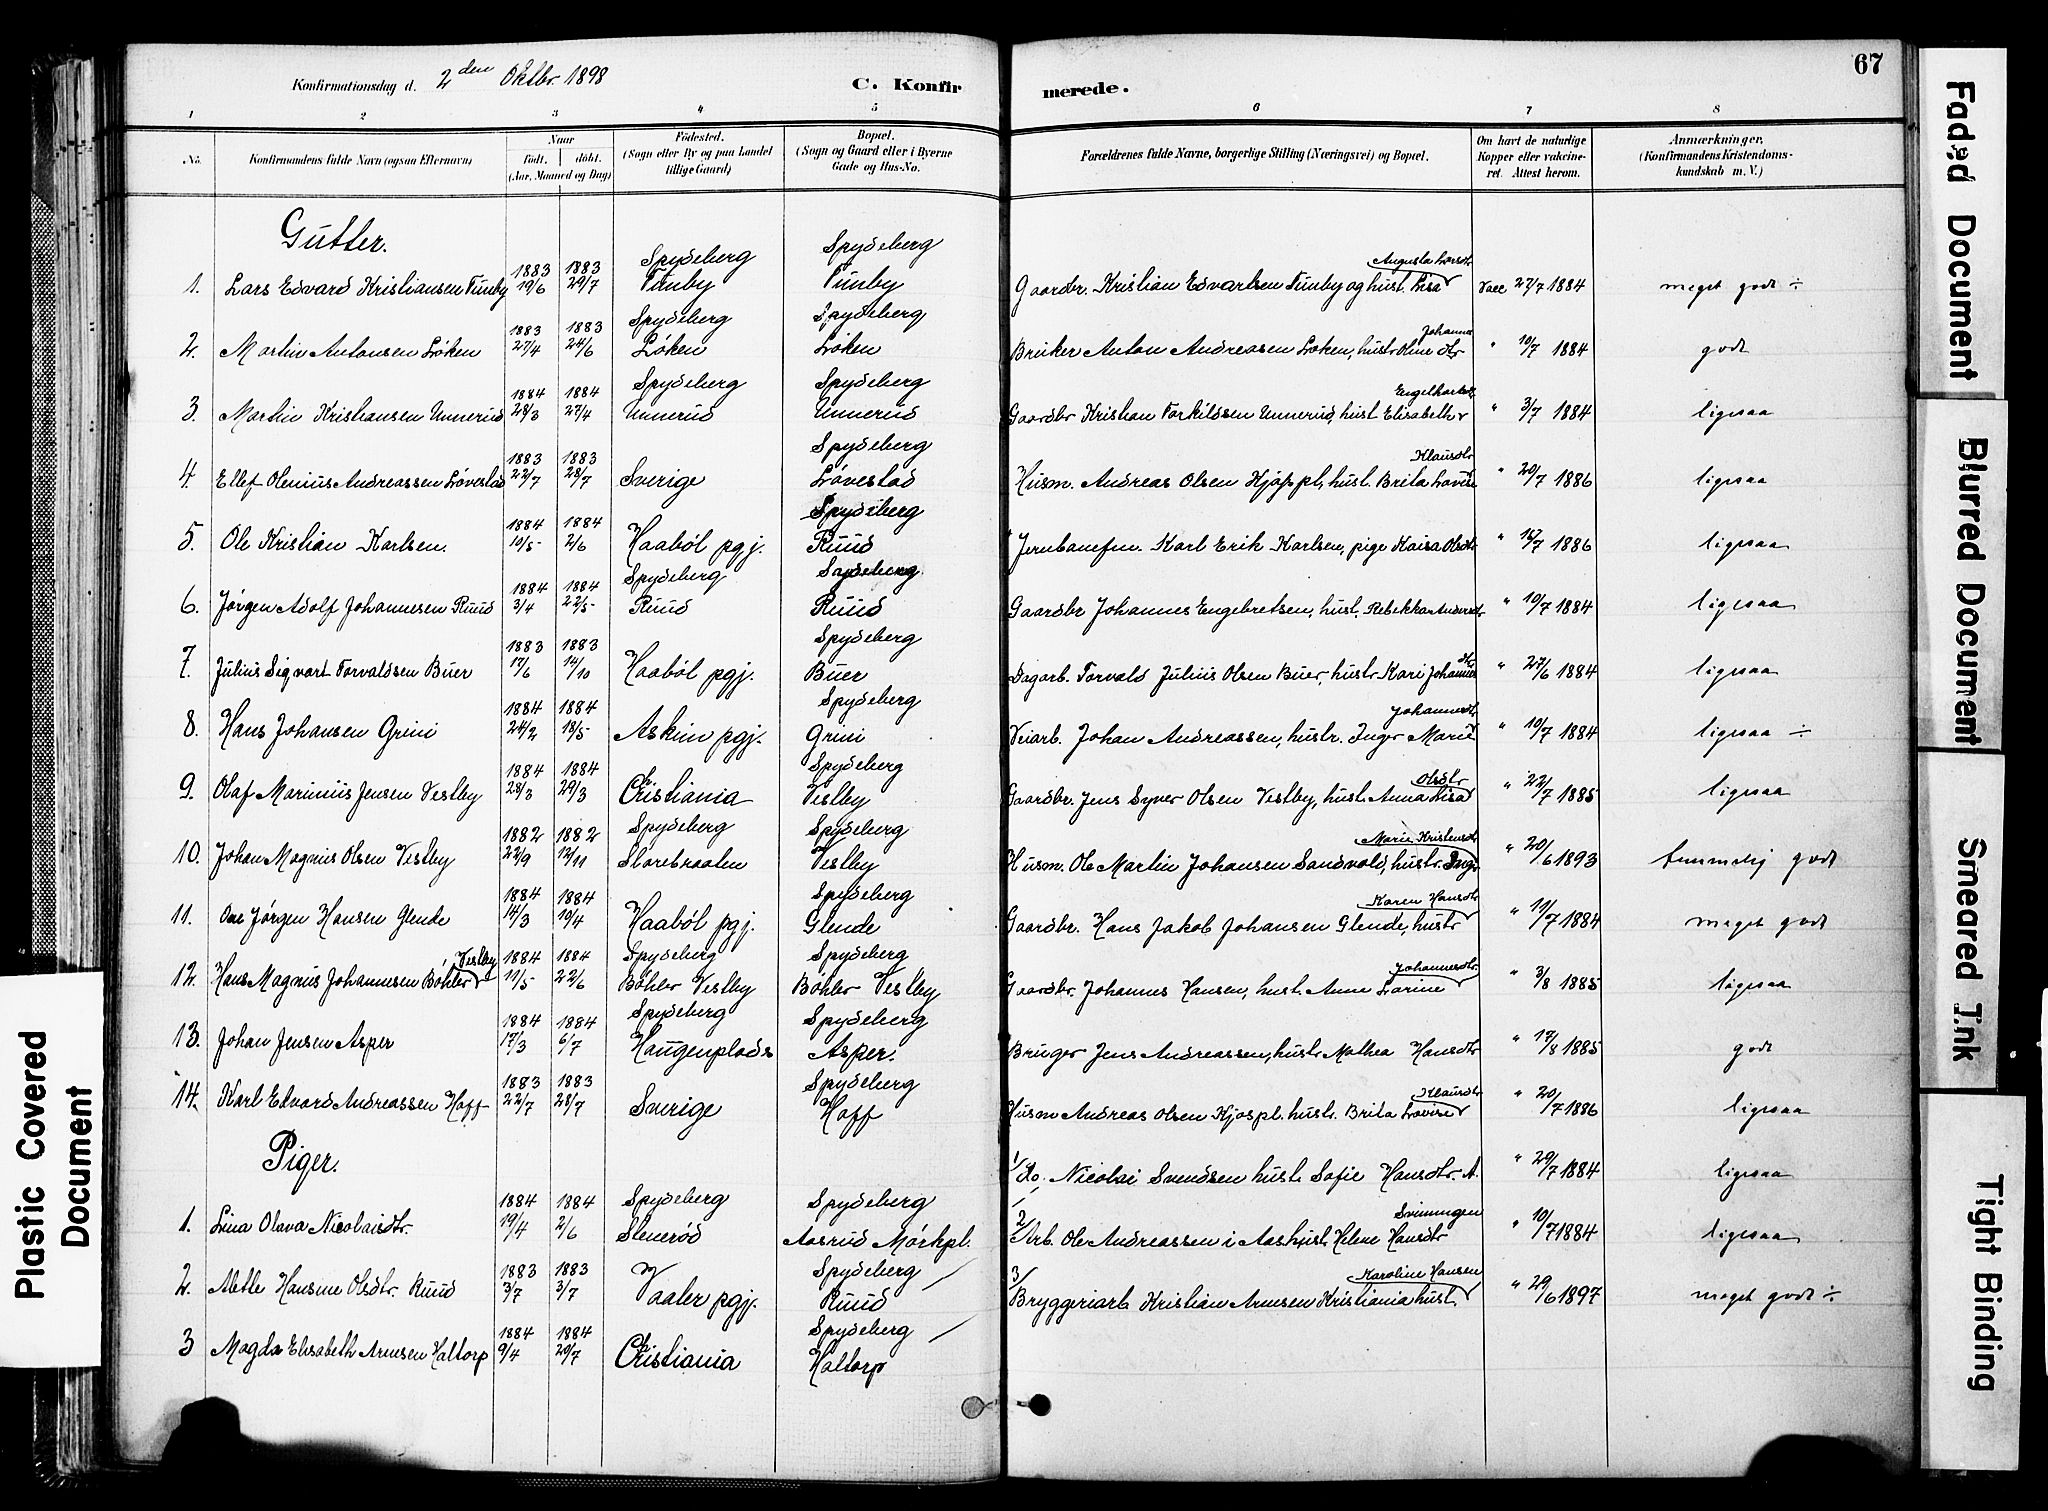 Konfirmationsdag d. 2den Oktbr. 1898
C. Konfirmerede.
67
1 2 3 4 5 6 7 8
No. Konfirmandens fulde Navn (ogsaa Efternavn) Naar födt. döbt. (Aar, Maaned og Dag) Födested. (Sogn eller By og paa Landet tillige Gaard) Bopæl. (Sogn og Gaard eller i Byerne Gade og Hus-No. Forældrenes fulde Navne, borgerlige Stilling (Næringsvei) og Bopæl. Om havt de naturlige Kopper eller vakcineret. Attest herom. Anmærkninger. (Konfirmandens Kristendomskundskab m. V.)
Gutter.
1. Lars Edvard Kristiansen Tunby 1883 19/6 1883 29/7 Spydeberg Tunby Spydeberg Tunby Gaardbr. Kristian Edvartsen Tunby og hust. Lisa Augusta Larsdt. Vacc 27/7 1884 meget godt ÷
2. Martin Antonsen Løken 1883 27/4 1883 24/6 Spydeberg Løken Spydeberg Løken Bruker Anton Andreassen Løken, hustr Oline Johannesdtr " 10/7 1884 godt
3. Martin Kristiansen Unnerud 1884 28/3 1884 27/4 Spydeberg Unnerud Spydeberg Unnerud Gaardbr Kristian Torkildsen Unnerud, hust Elisabeth Engelhartsdt. " 3/7 1884 ligesaa
4. Ellef Olenius Andreassen Løvestad 1883 22/7 1883 28/7 Sverige Spydeberg Løvestad Husm. Andreas Olsen Kjøspl, hust. Brita Lovise Klausdtr " 20/7 1886 ligesaa
5. Ole Kristian Karlsen. 1884 10/5 1884 2/6 Haabøl pgj. Spydeberg Ruud Jernbanefm. Karl Erik Karlsen, pige Kaisa Olsdtr " /7 1886 ligesaa
6. Jørgen Adolf Johannesen Ruud 1884 3/4 1884 22/5 Spydeberg Ruud Spydeberg Ruud Gaardbr Johannes Engebretsen, hust. Rebekka Andersdt. " 10/7 1884 ligesaa
7. Julius Sigvart Torvaldsen Buer 1883 17/6 1883 14/10 Haabøl pgj. Spydeberg Buer Dagarb. Torvald Julius Olsen Buer, hustr Kari Johannesdtr " 27/6 1884 ligesaa
8. Hans Johansen Grini 1884 24/2 1884 18/5 Askim pgj. Spydeberg Grini Veiarb. Johan Andreassen, hustr. Inger Marie Johannesdt. " 10/7 1884 ligesaa ÷
9. Olaf Marinius Jensen Vestby 1884 28/3 1884 29/3 Christiania Spydeberg Vestby Gaardbr. Jens Syver Olsen Vestby, hust. Anna Lisa Olsdtr " 22/7 1885 ligesaa
10. Johan Magnus Olsen Vestby 1882 22/9 1882 12/11 Spydeberg Storebraaten Spydeberg Vestby Husm. Ole Martin Johansen Sandvold, hustr. Inger Marie Kristensdt. " 20/6 1893 temmelig godt
11. Ove Jørgen Hansen Glende 1884 14/3 1884 10/4 Haabøl pgj. Spydeberg Glende Gaardbr. Hans Jakob Johansen Glende, hustr Karen Hansdt " 10/7 1884 meget godt
12. Hans Magnus Johannesen Bøhler Vestby 1884 11/5 1884 22/6 Spydeberg Bøhler Vestby Spydeberg Bøhler Vestby Gaardbr. Johannes Hansen, hust. Anne Larine Johannesdtr. " 3/8 1885 ligesaa
13. Johan Jensen Asper 1884 17/3 1884 6/7 Spydeberg Haugenplads Spydeberg Asper. Bruger Jens Andreassen, hustr Mathea Hansdtr " 17/8 1885 godt
14. Karl Edvard Andreassen Hoff 1883 22/7 1883 28/7 Sverige Spydeberg Hoff Husm Andreas Olsen Kjøspl. hustr. Brita Lovise Klausdtr " 20/7 1886 ligesaa
Piger.
1. Lina Olava Nicolaisdtr. 1884 19/4 1884 2/6 Spydeberg Stenerød Spydeberg Aasrud Mørkpl. 1/ do. Nicolai Svendsen hust. Sofie Hansdtr. A. " 29/7 1884 ligesaa
2. Alette Hansine Olsdtr. Ruud 1883 3/7 1883 3/7 Vaaler pgj. Spydeberg Ruud 2/ Arb. Ole Andreassen i Aas hust. Helene Hansdtr Svinningen " 10/7 1884 ligesaa
3 Magda Elisabeth Arnesen Haltorp 1884 9/4 1884 20/7 Christiania Spydeberg Haltorp 3/ Bryggeriarb Kristian Arnesen Kristiania hust. Karoline Hansen " 29/6 1897 meget godt ÷
Faded Document
Blurred Document
Smeared Ink
Tight Binding
Plastic Covered Document